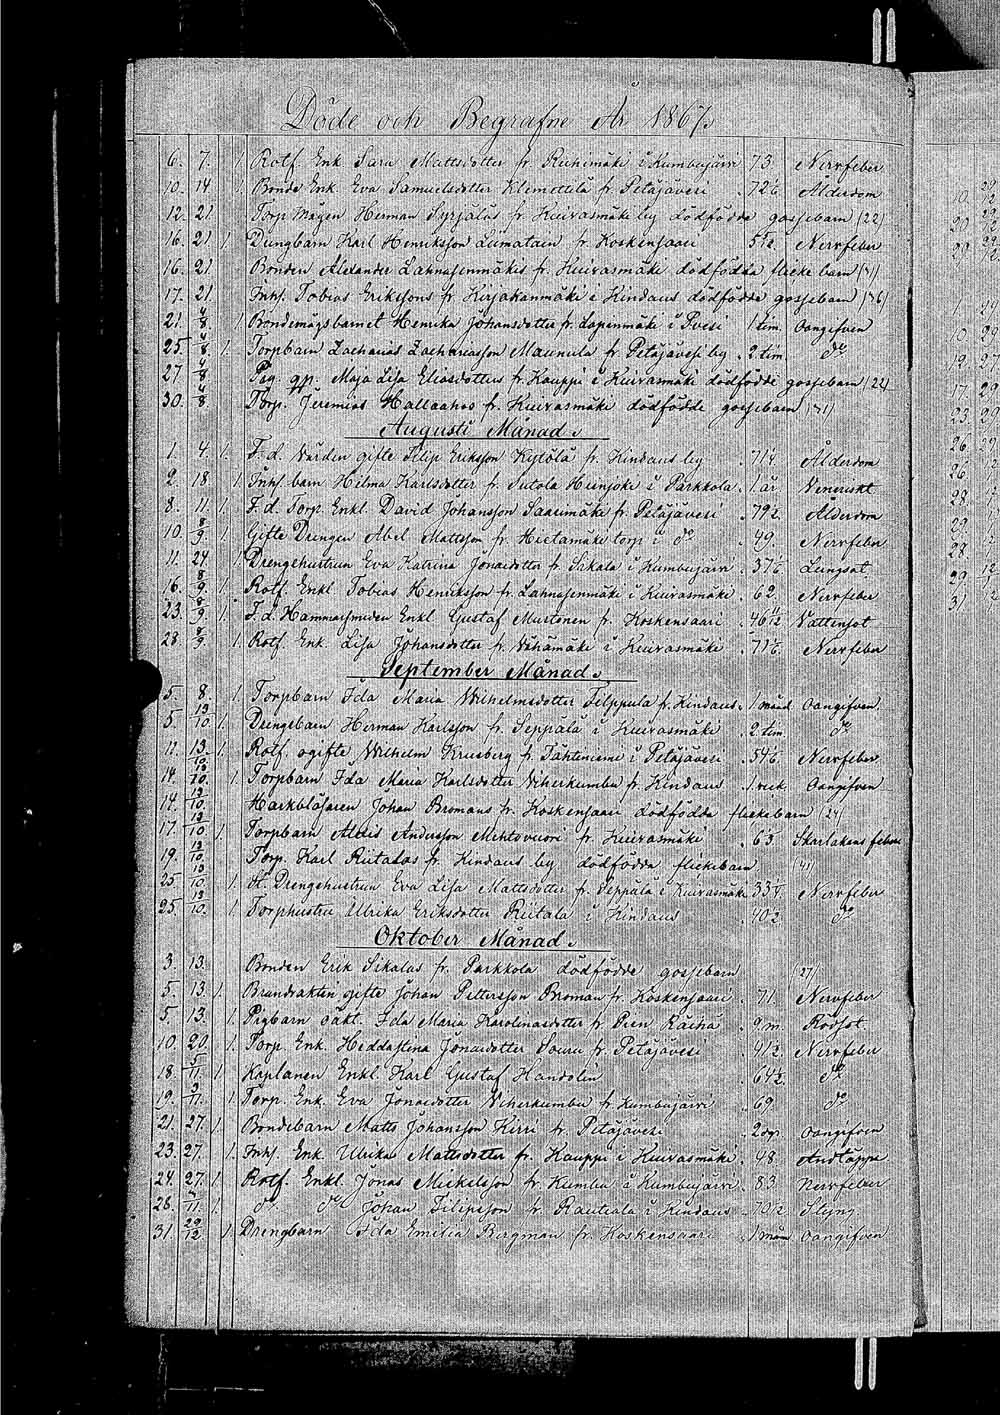 Döde och Begrafne År 1867.
6. 7. 1. Rotf. Enk. Sara Mattsdotter fr. Ruhimäki i Kumbujärvi 73. Nervfeber
10. 14 1. Bonde Enk. Eva Samuelsdotter Klemettilä fr. Petäjävesi 72 Ålderdom
12. 21 Torp. Mågen Herman Syrjäläs fr. Kuivasmäki by dödfödde gossebarn (22)
16. 21 1. Dungbarn Karl Henriksson Liimatain fr. Koskensaari Nervfeber
16. 21. Bonden Alexander Lahnajenmäkis fr. Kuivasmäki dödfödda flickebarn
17. 21. Inhs. Tobias Erikssons fr. Kirjakanmäki i Kindaus dödfödde gossebarn
21. 4/8. 1. Bondemågsbarnet Henrika Johansdotter fr. Lapinmäki i Pvesi 1 tim. Oangifven
25. 4/8. 1. Torpbarn Zacharias Zachariasson Maunula fr. Petäjävesi by 2 tim. do
27 4/8 Pig. Maja Lisa Eliasdotters fr. Kauppi i Kuivasmäki dödfödde gossebarn (22)
30. 4/8. Torp. Jeremias Hallaahos fr. Kuivasmäki dödfödde gossebarn
Augusti Månad.
1. 4. 1. F. d. Värden gifte Filip Eriksson Kytölä fr. Kindaus by 71 Ålderdom
2. 18 1. Inhs. barn Hilma Karlsdotter fr. Sutola Heinjoki i Parkkola 1 år. Veneriskt
8. 11. 1. F. d. Torp. Enkl. David Johansson Saarimäki fr. Petäjävesi 79 Ålderdom
10. 8/9. 1. Gifte Drengen Abel Mattsson fr. Hietamäki torp i do 49. Nervfeber
11. 24 1. Drengehustrun Eva Katrina Jonaedotter fr. Sikala i Kumbujärvi 37 Lungsot
16. 8/9. 1. Rotf. Enkl. Tobias Henriksson fr. Lahnajenmäki i Kuivasmäki 62. Nervfeber
23. 8/9. 1. F. d. Hammarsmeden Enkl. Gustaf Mustonen fr. Koskensaari 46 Vattensot
28. 8/9. 1. Rotf. Enk. Lisa Johansdotter fr. Vähämäki i Kuivasmäki 71 Nervfeber
September Månad.
5. 8. 1. Torpbarn Ida Maria Wilhelmsdotter Filppula fr. Kindaus 1 månd Oangifven
5. 13/10. 1. Drengebarn Herman Karlsson fr. Seppälä i Kuivasmäki 2 tim. do
11. 13/10. 1. Rotf. ogifte Wilhelm Krusberg fr. Tähteniemi i Petäjävesi 54 Nervfeber
14. 13/10. 1. Torpbarn Ida Maria Karlsdotter Viherkumbu fr. Kindaus 1 veck. Oangifven
14. 13/10. Harkblåsaren Johan Bromans fr. Koskensaari dödfödda flickebarn (24)
17. 13/10 1. Torpbarn Alexis Andersson Mehtovuori fr. Kuivasmäki 6 Skarlakans feber
19. 13/10. Torp. Karl Riitalas fr. Kindaus by dödfödda flickebarn (41)
25 13/10 1. Drengehustrun Eva Lisa Mattsdotter fr. Seppälä i Kuivasmäki 33 Nervfeber
25. 13/10. 1. Torphustru Ulrika Eriksdotter Riitala i Kindaus 40 do
Oktober Månad.
3. 13. Bonden Erik Sikalas fr. Parkkola dödfödde gossebarn (27)
5. 13. 1. Brandvakten gifte Johan Pettersson Broman fr. Koskensaari 71. Nervfeber
5. 13. 1. Pigbarn oäkt. Ida Maria Karolinasdotter fr. Pien Räihä 9 m. Rödsot
10. 20. 1. Torp. Enk. Heddastina Jonaedotter Souru fr. Petäjävesi 41 Nervfeber
18. 5/11. 1 Kaplanen Enkl. Karl Gustaf Handolin 64 do
19. 1. Torp. Enk. Eva Jonaedotter Viherkumbu fr. Kumbujärvi 69. do
21. 27. 1. Bondebarn Matts Johansson Kirri fr. Petäjävesi 2 dgr. Oangifven
23. 27. 1. Inhs. Enk. Ulrika Mattsdotter fr. Kauppi i Kuivasmäki 48. Andtäppa
24. 27. 1. Rotf. Enkl. Jonas Mickelsson fr. Kumbu i Kumbujärvi 83 Nervfeber
28. 1. do do Johan Filipsson fr. Rautiala i Kindaus 70 Slejng
31. 29/12 1. Drengbarn Ida Emilia Bergman fr. Koskensaari 1 mån Oangifven